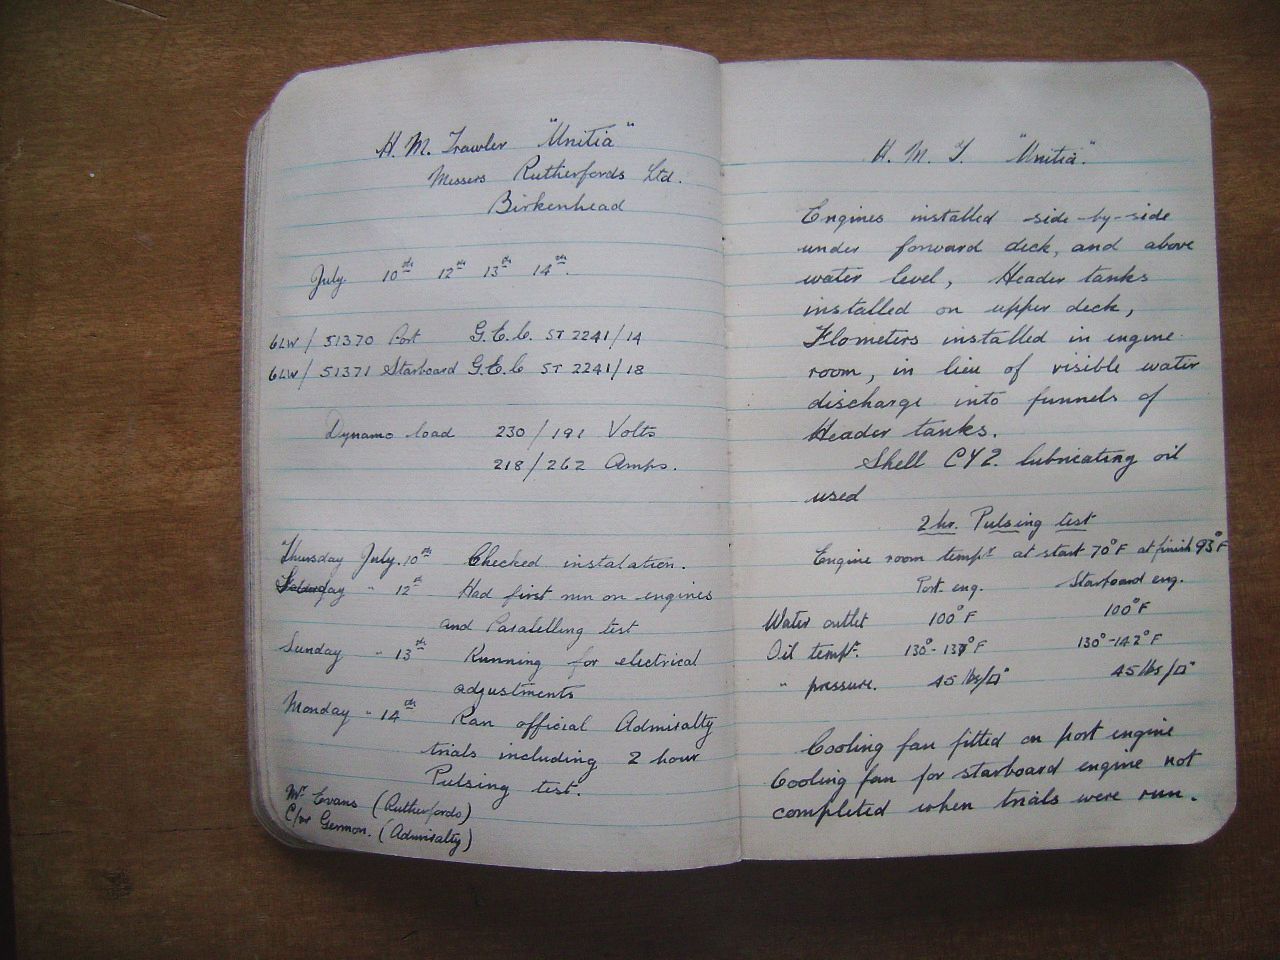 H. M. Trawler "Unitia"
Messers Rutherfords Ltd.
Birkenhead
July 10th 12th 13th 14th.
6LW / 51370 Port G.E.C ST 2241/14
6LW / 51371 Starboard G.E.C ST 2241/18
Dynamo load 230 / 191 Volts
218 / 262 Amps.
Thursday July. 10th Checked instalation.
Saturday " 12th Had first run on engines
and Paralelling test
Sunday " 13th Running for electrical
adjustments
Monday " 14th Ran official Admiralty
trials including 2 hour
Pulsing test.
Mr Evans (Rutherfords)
C/wr Germon. (Admiralty)
H. M. T. "Unitia".
Engines installed side-by-side
under forward deck, and above
water level, Header tanks
installed on upper deck,
Flometers installed in engine
room, in lieu of visible water
discharge into funnels of
Header tanks.
Shell CY2. lubricating oil
used
2 hr. Pulsing test
Engine room tempr at start 70°F at finish 93°F
Port. eng. Starboard eng.
Water outlet 100°F 100°F
Oil tempr. 130°-137°F 130°-142°F
" pressure. 45 lbs/□" 45 lbs/□"
Cooling fan fitted on port engine
Cooling fan for starboard engine not
completed when trials were run.